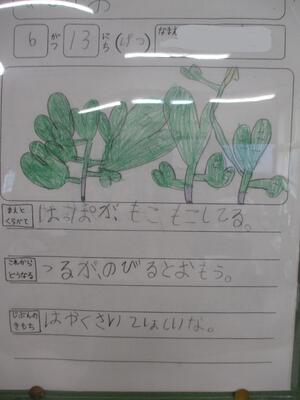 6 がつ 13 にち (げつ) なまえ
まえと くらべて はっぱが、もこもこしてる。
これから どうなる つるが、のびるとおもう。
じぶんの きもち はやくさいてほしいな。